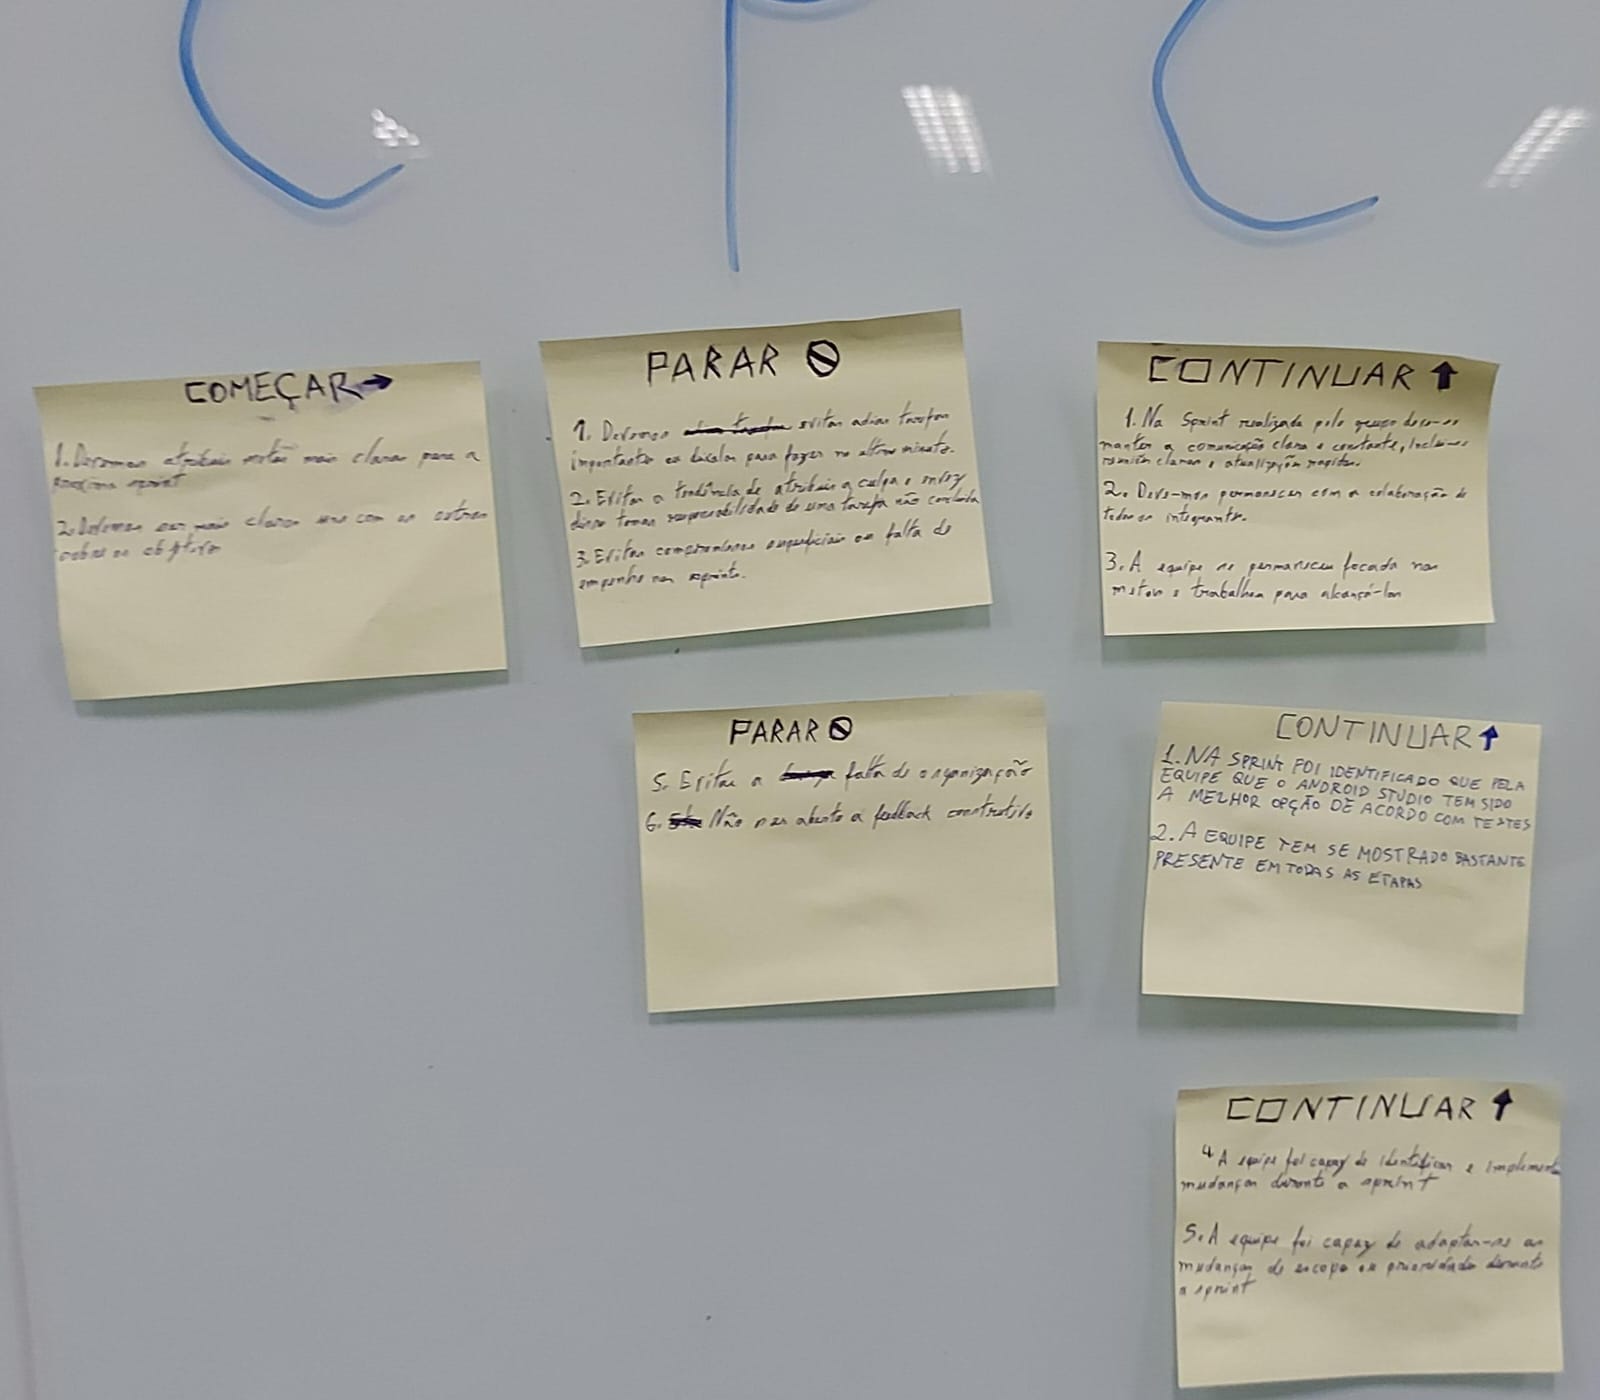 C P C
COMEÇAR →
1. Devemos atribuir metas mais claras para a
proxima sprint
2. Devemos ser mais claros uns com os outros
sobre os objetivos
PARAR
1. Devemos evitar adiar tarefas
importantes ou deixalas para fazer no ultimo minuto.
2. Evitar a tendência de atribuir a culpa e invez
disso tomar responsabilidade de uma tarefa não concluida
3. Evitar compromissos superficiais ou falta de
empenho nas sprints.
PARAR
5. Evitar a falta de organização
6. Não ser aberto a feedback construtivo
CONTINUAR ↑
1. Na Sprint realizada pelo grupo deve-se
manter a comunicação clara e constante, inclui-se
reunião claras e atualização rapidas.
2. Deve-mos permanecer com a colaboração de
todos os integrantes.
3. A equipe se permaneceu focada nas
metas e trabalhou para alcançá-las
CONTINUAR ↑
1. NA SPRINT FOI IDENTIFICADO QUE PELA
EQUIPE QUE O ANDROID STUDIO TEM SIDO
A MELHOR OPÇÃO DE ACORDO COM TESTES
2. A EQUIPE TEM SE MOSTRADO BASTANTE
PRESENTE EM TODAS AS ETAPAS
CONTINUAR ↑
4 A equipe foi capaz de identificar e implementa
mudanças durante a sprint
5. A equipe foi capaz de adaptar-se as
mudanças de escopo ou prioridades durante
a sprint